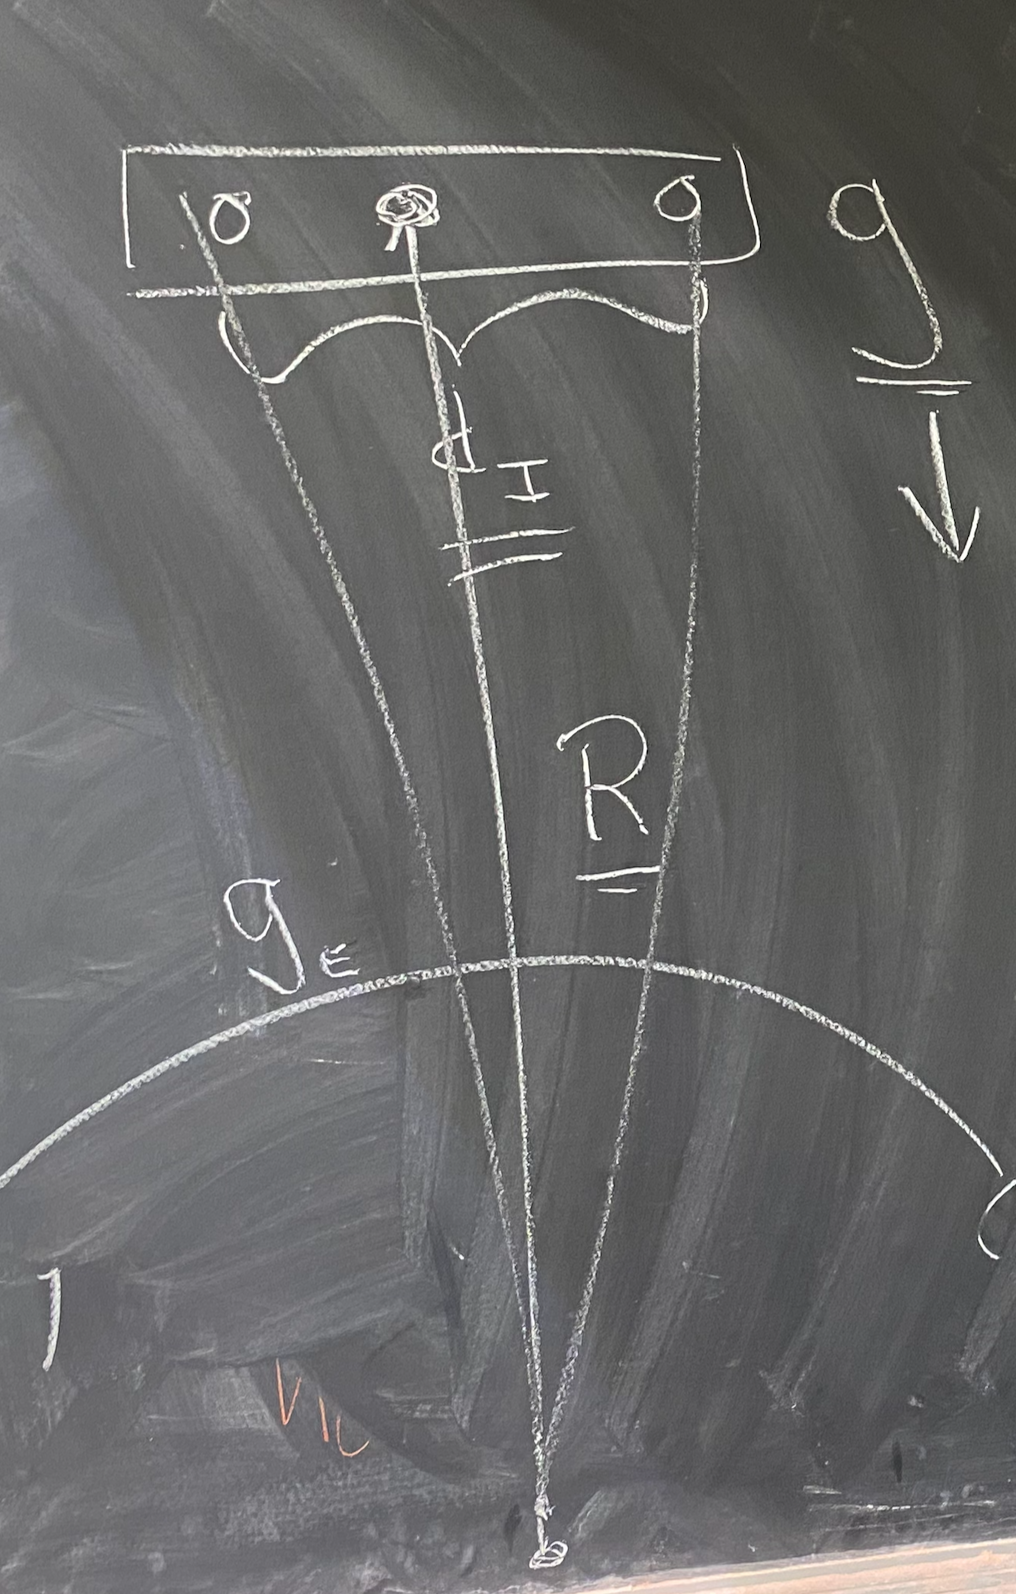 g
d_I
R
g_E